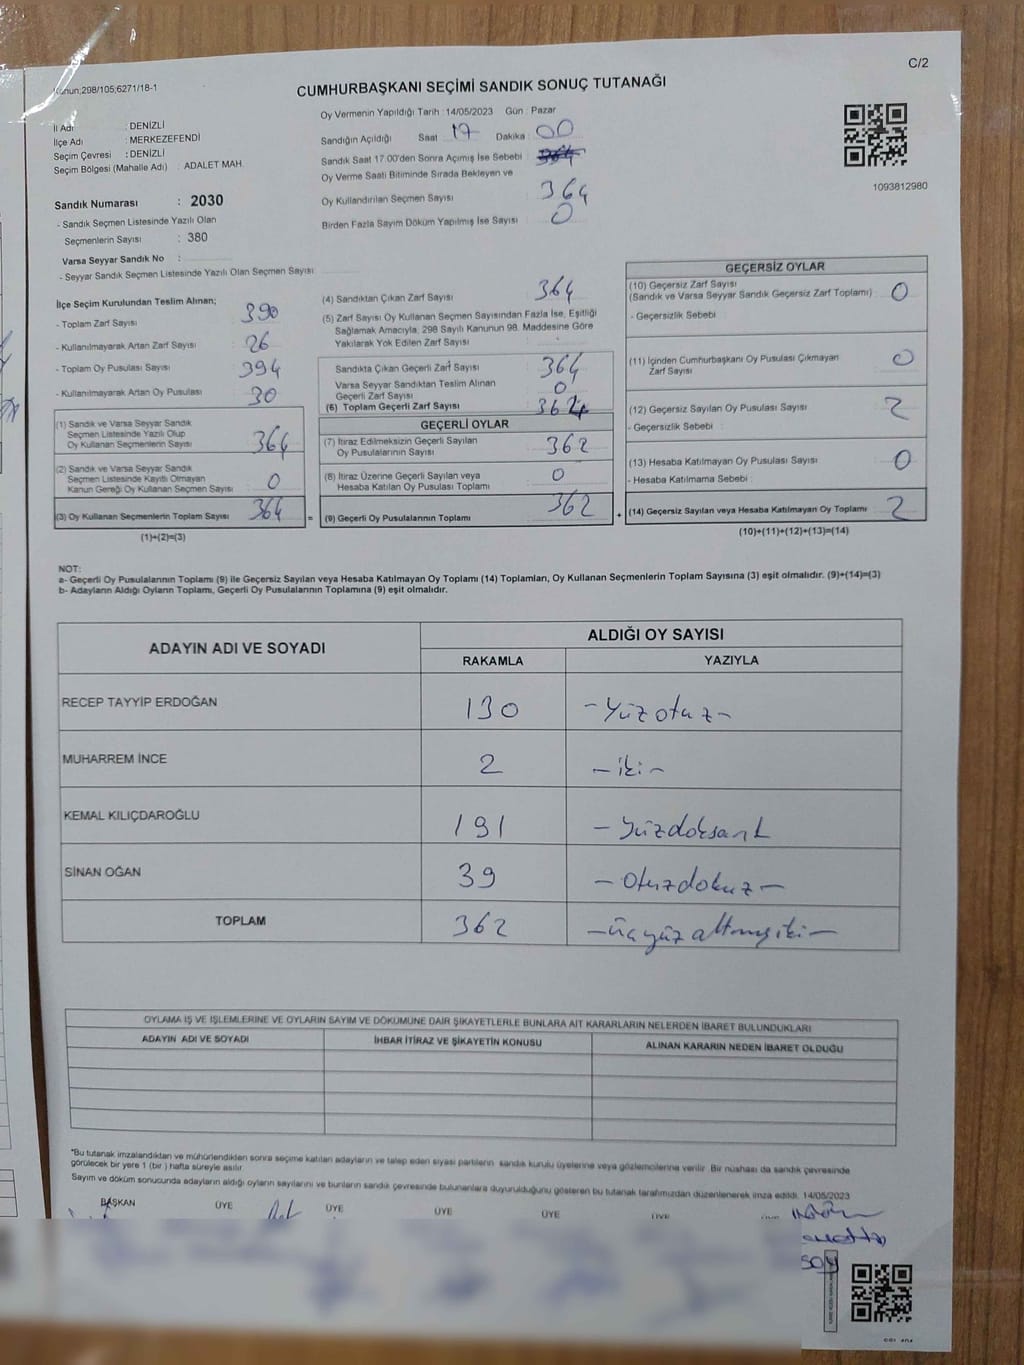 C/2
298/105;6271/18-1
CUMHURBAŞKANI SEÇİMİ SANDIK SONUÇ TUTANAĞI
İl Adı : DENİZLİ
İlçe Adı : MERKEZEFENDİ
Seçim Çevresi : DENİZLİ
Seçim Bölgesi (Mahalle Adı) : ADALET MAH.
Oy Vermenin Yapıldığı Tarih : 14/05/2023 Gün : Pazar
Sandığın Açıldığı Saat 17 Dakika : 00
Sandık Saat 17.00'den Sonra Açımış İse Sebebi :
Oy Verme Saati Bitiminde Sırada Bekleyen ve
Oy Kullandırılan Seçmen Sayısı : 364
Birden Fazla Sayım Döküm Yapılmış İse Sayısı : 0
1093812980
Sandık Numarası : 2030
- Sandık Seçmen Listesinde Yazılı Olan
Seçmenlerin Sayısı : 380
Varsa Seyyar Sandık No :
- Seyyar Sandık Seçmen Listesinde Yazılı Olan Seçmen Sayısı:
İlçe Seçim Kurulundan Teslim Alınan;
- Toplam Zarf Sayısı : 390
- Kullanılmayarak Artan Zarf Sayısı : 26
- Toplam Oy Pusulası Sayısı : 394
- Kullanılmayarak Artan Oy Pusulası : 30
(1) Sandık ve Varsa Seyyar Sandık
Seçmen Listesinde Yazılı Olup
Oy Kullanan Seçmenlerin Sayısı 364
(2) Sandık ve Varsa Seyyar Sandık
Seçmen Listesinde Kayıtlı Olmayan
Kanun Gereği Oy Kullanan Seçmen Sayısı 0
(3) Oy Kullanan Seçmenlerin Toplam Sayısı 364
(1)+(2)=(3)
(4) Sandıktan Çıkan Zarf Sayısı : 364
(5) Zarf Sayısı Oy Kullanan Seçmen Sayısından Fazla İse, Eşitliği
Sağlamak Amacıyla, 298 Sayılı Kanunun 98. Maddesine Göre
Yakılarak Yok Edilen Zarf Sayısı :
Sandıkta Çıkan Geçerli Zarf Sayısı : 364
Varsa Seyyar Sandıktan Teslim Alınan
Geçerli Zarf Sayısı : 0
(6) Toplam Geçerli Zarf Sayısı :
GEÇERLİ OYLAR
(7) İtiraz Edilmeksizin Geçerli Sayılan
Oy Pusulalarının Sayısı : 362
(8) İtiraz Üzerine Geçerli Sayılan veya
Hesaba Katılan Oy Pusulası Toplamı : 0
= (9) Geçerli Oy Pusulalarının Toplamı : 362
GEÇERSİZ OYLAR
(10) Geçersiz Zarf Sayısı
(Sandık ve Varsa Seyyar Sandık Geçersiz Zarf Toplamı) : 0
- Geçersizlik Sebebi :
(11) İçinden Cumhurbaşkanı Oy Pusulası Çıkmayan
Zarf Sayısı : 0
(12) Geçersiz Sayılan Oy Pusulası Sayısı : 2
- Geçersizlik Sebebi :
(13) Hesaba Katılmayan Oy Pusulası Sayısı : 0
- Hesaba Katılmama Sebebi :
+ (14) Geçersiz Sayılan veya Hesaba Katılmayan Oy Toplamı : 2
(10)+(11)+(12)+(13)=(14)
NOT:
a- Geçerli Oy Pusulalarının Toplamı (9) ile Geçersiz Sayılan veya Hesaba Katılmayan Oy Toplamı (14) Toplamları, Oy Kullanan Seçmenlerin Toplam Sayısına (3) eşit olmalıdır. (9)+(14)=(3)
b- Adayların Aldığı Oyların Toplamı, Geçerli Oy Pusulalarının Toplamına (9) eşit olmalıdır.
ADAYIN ADI VE SOYADI
ALDIĞI OY SAYISI
RAKAMLA YAZIYLA
RECEP TAYYİP ERDOĞAN 130 - Yüzotuz -
MUHARREM İNCE 2 - iki -
KEMAL KILIÇDAROĞLU 191 - Yüzdoksanb
SİNAN OĞAN 39 - Otuzdokuz -
TOPLAM 362 - üçyüzaltmışiki -
OYLAMA İŞ VE İŞLEMLERİNE VE OYLARIN SAYIM VE DÖKÜMÜNE DAİR ŞİKAYETLERLE BUNLARA AİT KARARLARIN NELERDEN İBARET BULUNDUKLARI
ADAYIN ADI VE SOYADI İHBAR İTİRAZ VE ŞİKAYETİN KONUSU ALINAN KARARIN NEDEN İBARET OLDUĞU
"Bu tutanak imzalandıktan ve mühürlendikten sonra seçime katılan adayların ve talep eden siyasi partilerin sandık kurulu üyelerine veya gözlemcilerine verilir. Bir nüshası da sandık çevresinde
görülecek bir yere 1 (bir ) hafta süreyle asılır.
Sayım ve döküm sonucunda adayların aldığı oyların sayılarını ve bunların sandık çevresinde bulunanlara duyurulduğunu gösteren bu tutanak tarafımızdan düzenlenerek imza edildi. 14/05/2023
BAŞKAN ÜYE ÜYE ÜYE ÜYE ÜYE